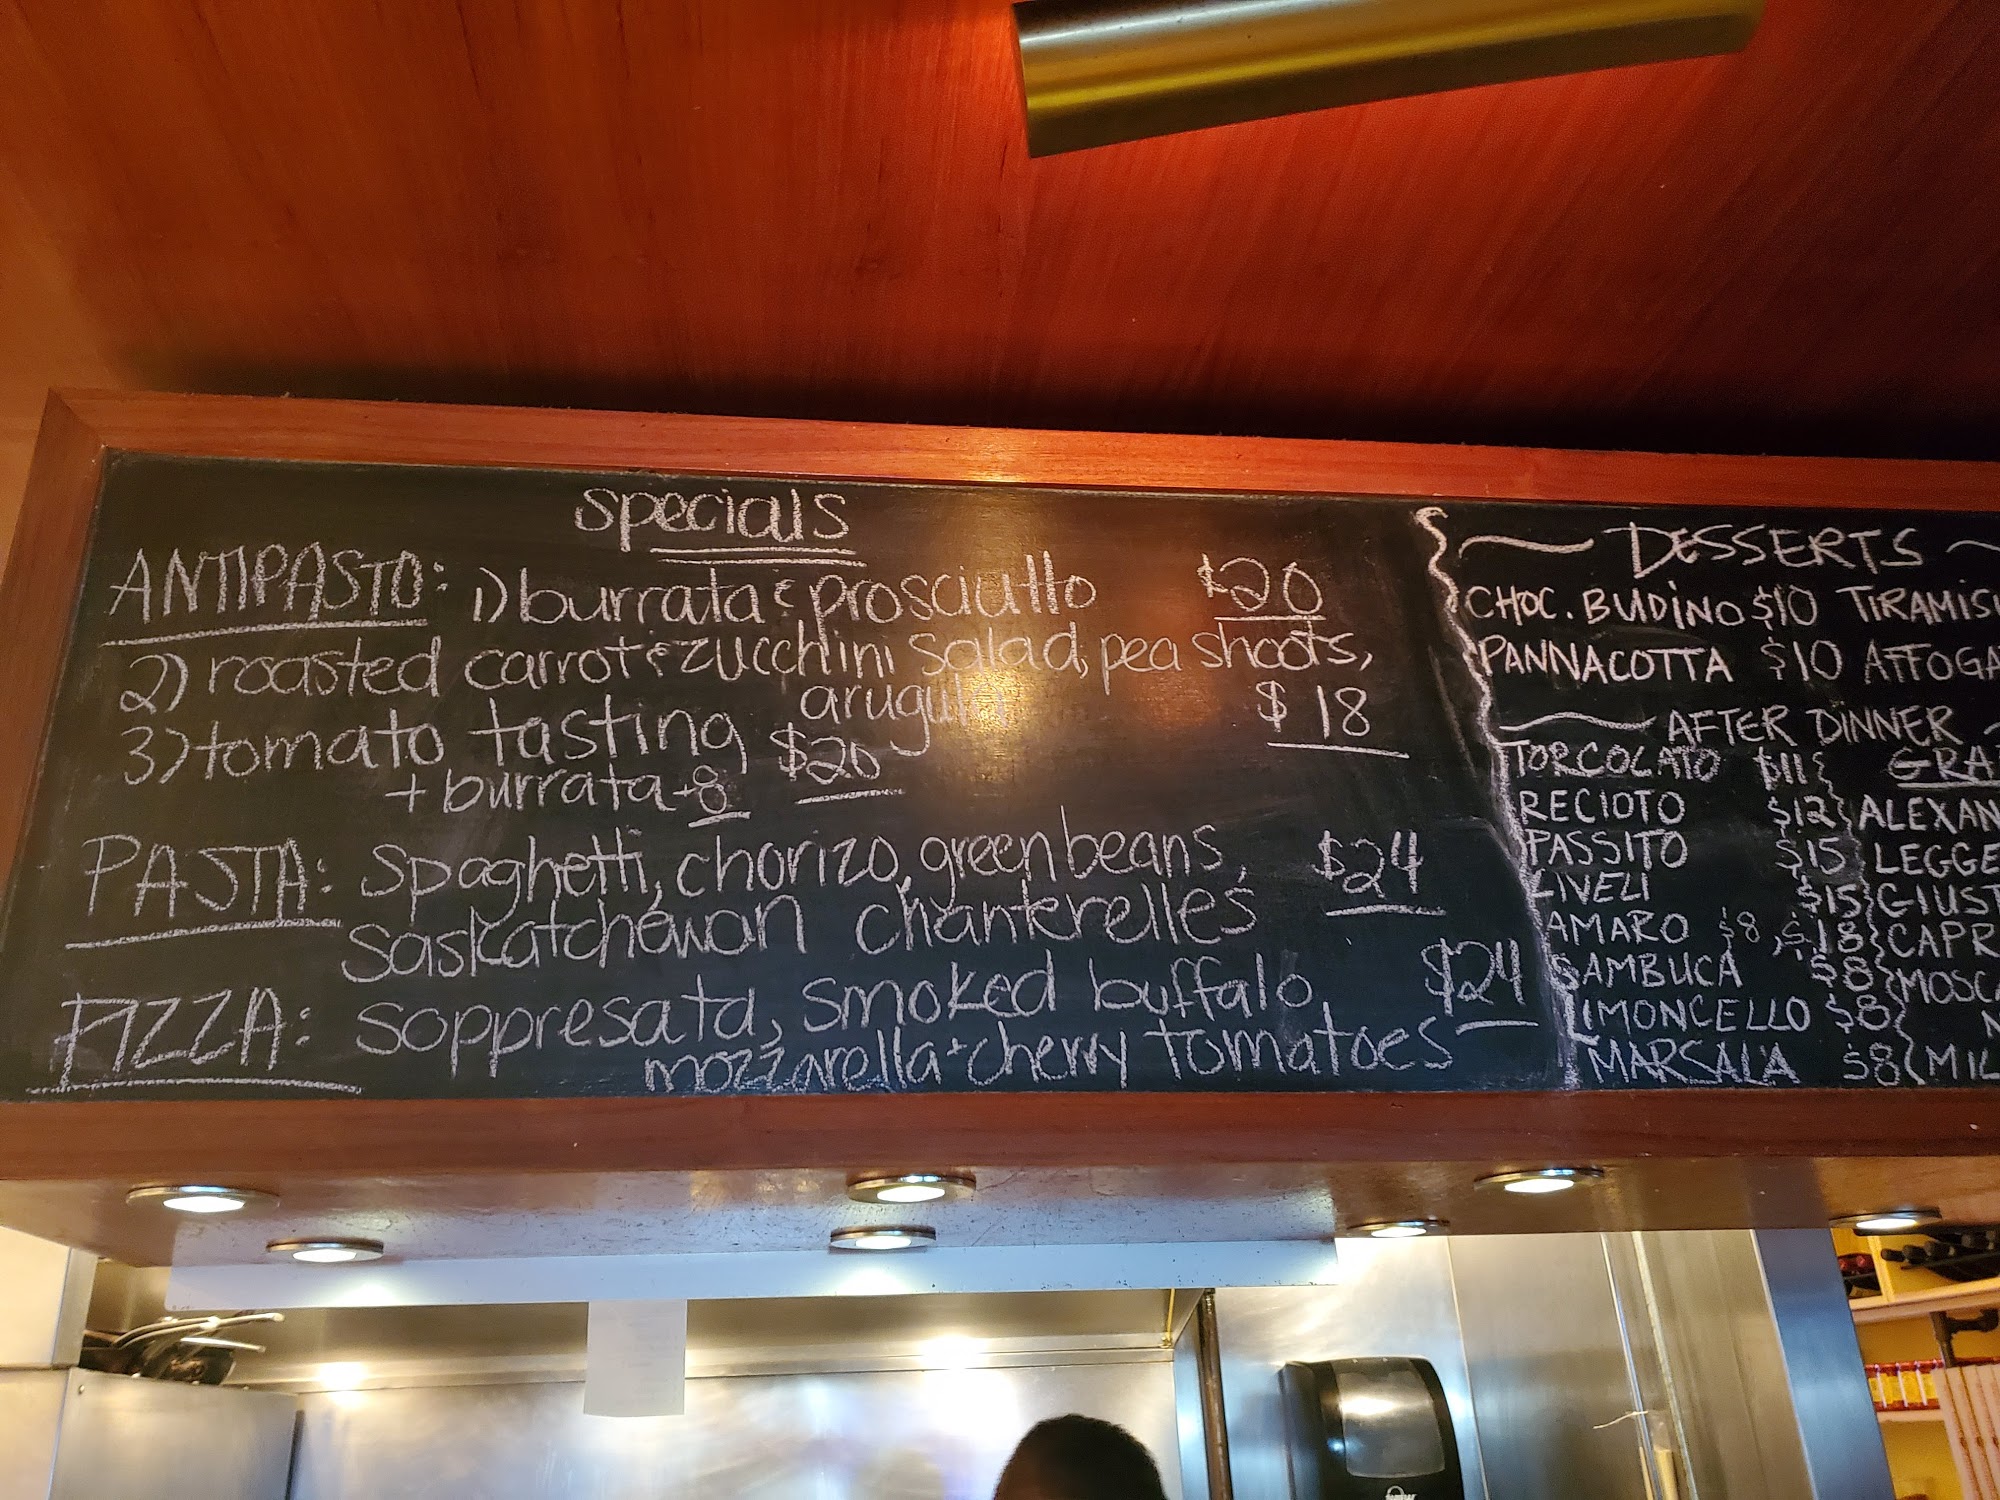 specials
ANTIPASTO: 1) burrata & prosciutto $20
2) roasted carrot & zucchini salad, pea shoots,
arugula $18
3) tomato tasting $20
+ burrata +8
PASTA: spaghetti, chorizo, green beans, $24
saskatchewan chanterelles
PIZZA: soppresata, smoked buffalo $24
mozzarella + cherry tomatoes
DESSERTS
CHOC. BUDINO $10 TIRAMISU
PANNACOTTA $10 AFFOGA
AFTER DINNER
TORCOLATO $11 GRA
RECIOTO $12 ALEXAN
PASSITO $15 LEGGE
$15 GIUST
AMARO $8, $18 CAPR
SAMBUCA $8 MOSCA
LIMONCELLO $8 N
MARSALA $8 MIL